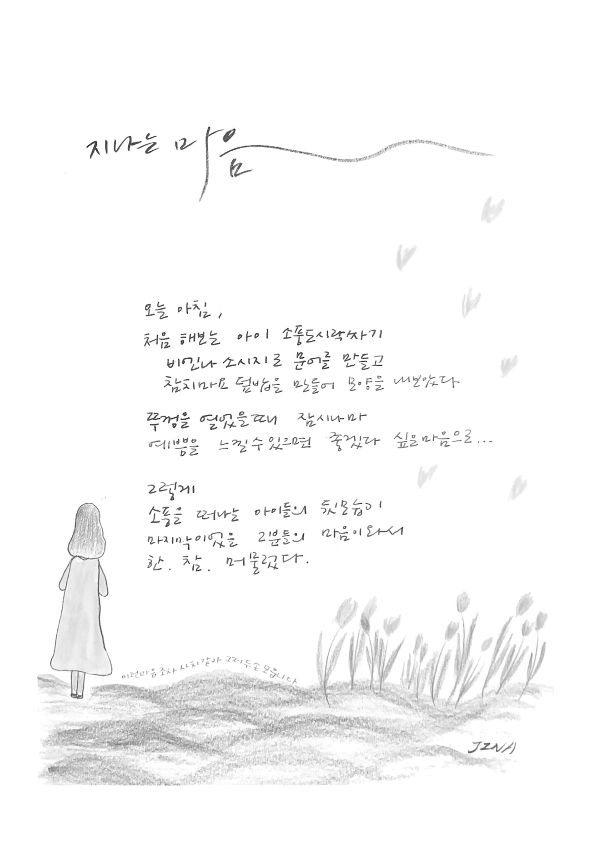 지나는 마음
오늘 아침,
처음 해보는 아이 소풍도시락싸기
비엔나 소시지로 문어를 만들고
참치마요 덮밥을 만들어 모양을 내보았다
뚜껑을 열었을때 잠시나마
예쁨을 느낄수있으면 좋겠다 싶은마음으로...
그렇게
소풍을 떠나는 아이들의 뒷모습이
마지막이었을 그분들의 마음이와서
한. 참. 머물렀다.
이런마음조차 사치같아 그저 두손 모읍니다
JINA